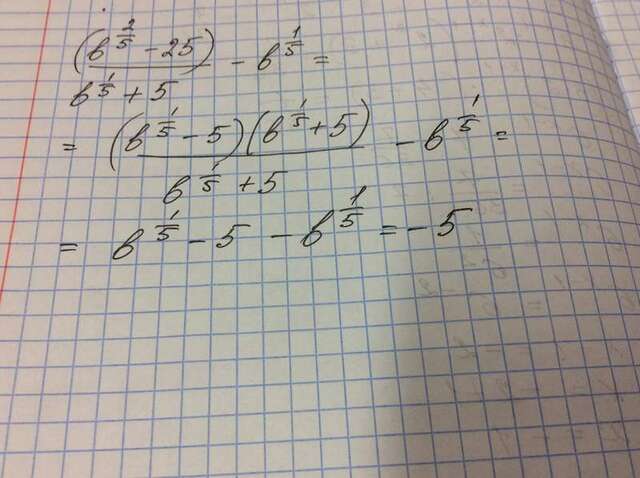 (b^{2/5} - 25) / (b^{1/5} + 5) - b^{1/5} =
= (b^{1/5} - 5)(b^{1/5} + 5) / (b^{1/5} + 5) - b^{1/5} =
= b^{1/5} - 5 - b^{1/5} = - 5